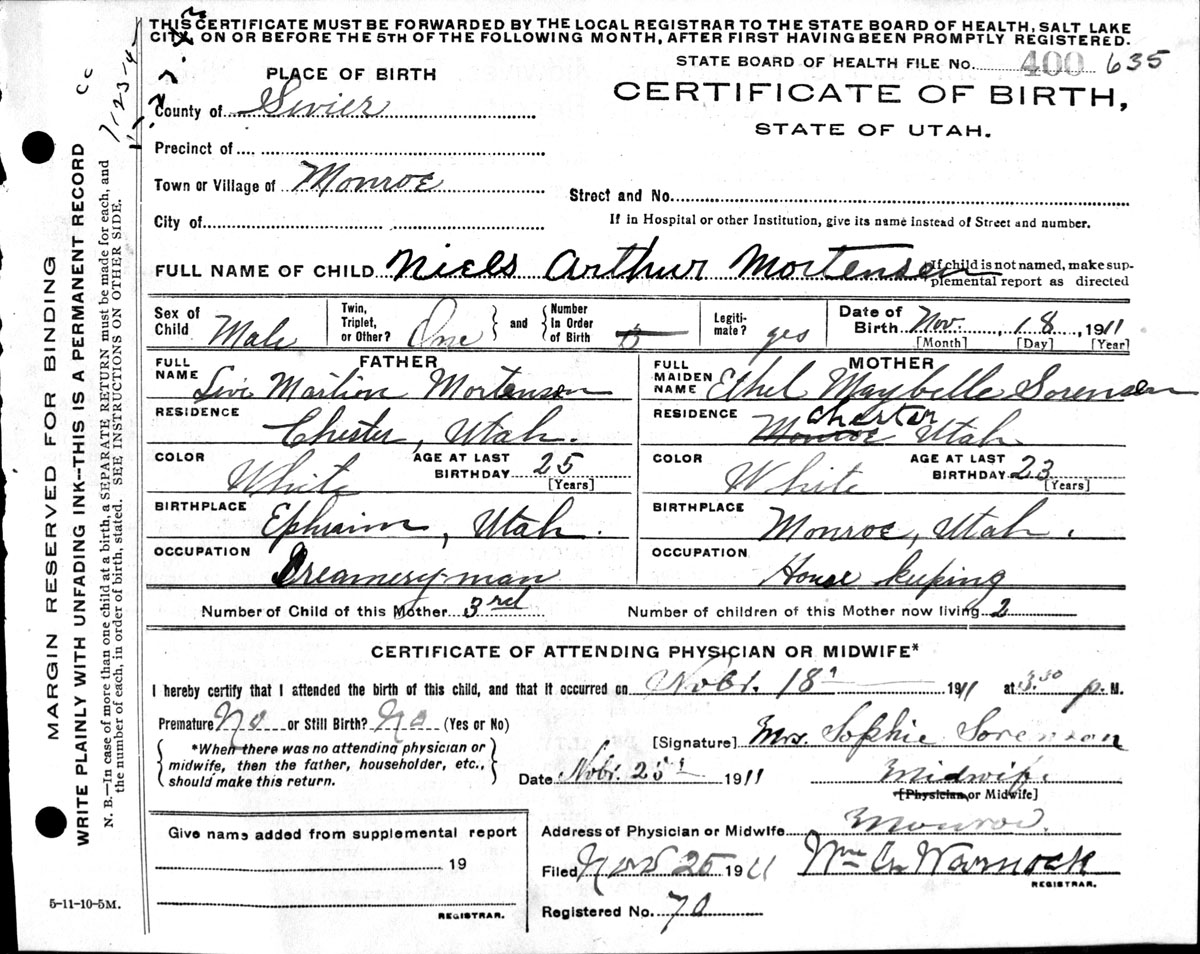 THIS CERTIFICATE MUST BE FORWARDED BY THE LOCAL REGISTRAR TO THE STATE BOARD OF HEALTH, SALT LAKE
CITY, ON OR BEFORE THE 5TH OF THE FOLLOWING MONTH, AFTER FIRST HAVING BEEN PROMPTLY REGISTERED.
STATE BOARD OF HEALTH FILE No. 400 635
CERTIFICATE OF BIRTH,
STATE OF UTAH.
PLACE OF BIRTH
County of Sevier
Precinct of
Town or Village of Monroe
Street and No.
City of
If in Hospital or other Institution, give its name instead of Street and number.
FULL NAME OF CHILD Niels Arthur Mortensen
If child is not named, make sup-
plemental report as directed
Sex of Child Male
Twin, Triplet, or Other? One
and
Number In Order of Birth
Legiti-mate? yes
Date of Birth Nov. 18, 1911
[Month] [Day] [Year]
FATHER
FULL NAME Levi Marlion Mortenson
RESIDENCE
Chester, Utah.
COLOR White
AGE AT LAST BIRTHDAY 25
[Years]
BIRTHPLACE
Ephraim, Utah.
OCCUPATION
Creamery-man
MOTHER
FULL MAIDEN NAME Ethel Maybelle Sorensen
RESIDENCE Chester
Monroe Utah
COLOR White
AGE AT LAST BIRTHDAY 23
[Years]
BIRTHPLACE
Monroe, Utah.
OCCUPATION
House keeping
Number of Child of this Mother 3rd
Number of children of this Mother now living 2
CERTIFICATE OF ATTENDING PHYSICIAN OR MIDWIFE*
I hereby certify that I attended the birth of this child, and that it occurred on Nobr. 18 1911 at 3.30 p. M.
Premature No or Still Birth? No (Yes or No)
*When there was no attending physician or
midwife, then the father, householder, etc.,
should make this return.
[Signature] Mrs. Sophie Sorenson
Date Nobr. 25 1911
Midwife.
[Physician or Midwife]
Give name added from supplemental report
19
REGISTRAR.
Address of Physician or Midwife Monroe.
Filed Nov 25 1911
Wm G. Warnock
REGISTRAR.
Registered No. 70
5-11-10-5M.
MARGIN RESERVED FOR BINDING
WRITE PLAINLY WITH UNFADING INK--THIS IS A PERMANENT RECORD
N. B.—In case of more than one child at a birth, a SEPARATE RETURN must be made for each, and
the number of each, in order of birth, stated. SEE INSTRUCTIONS ON OTHER SIDE.
7-23-14